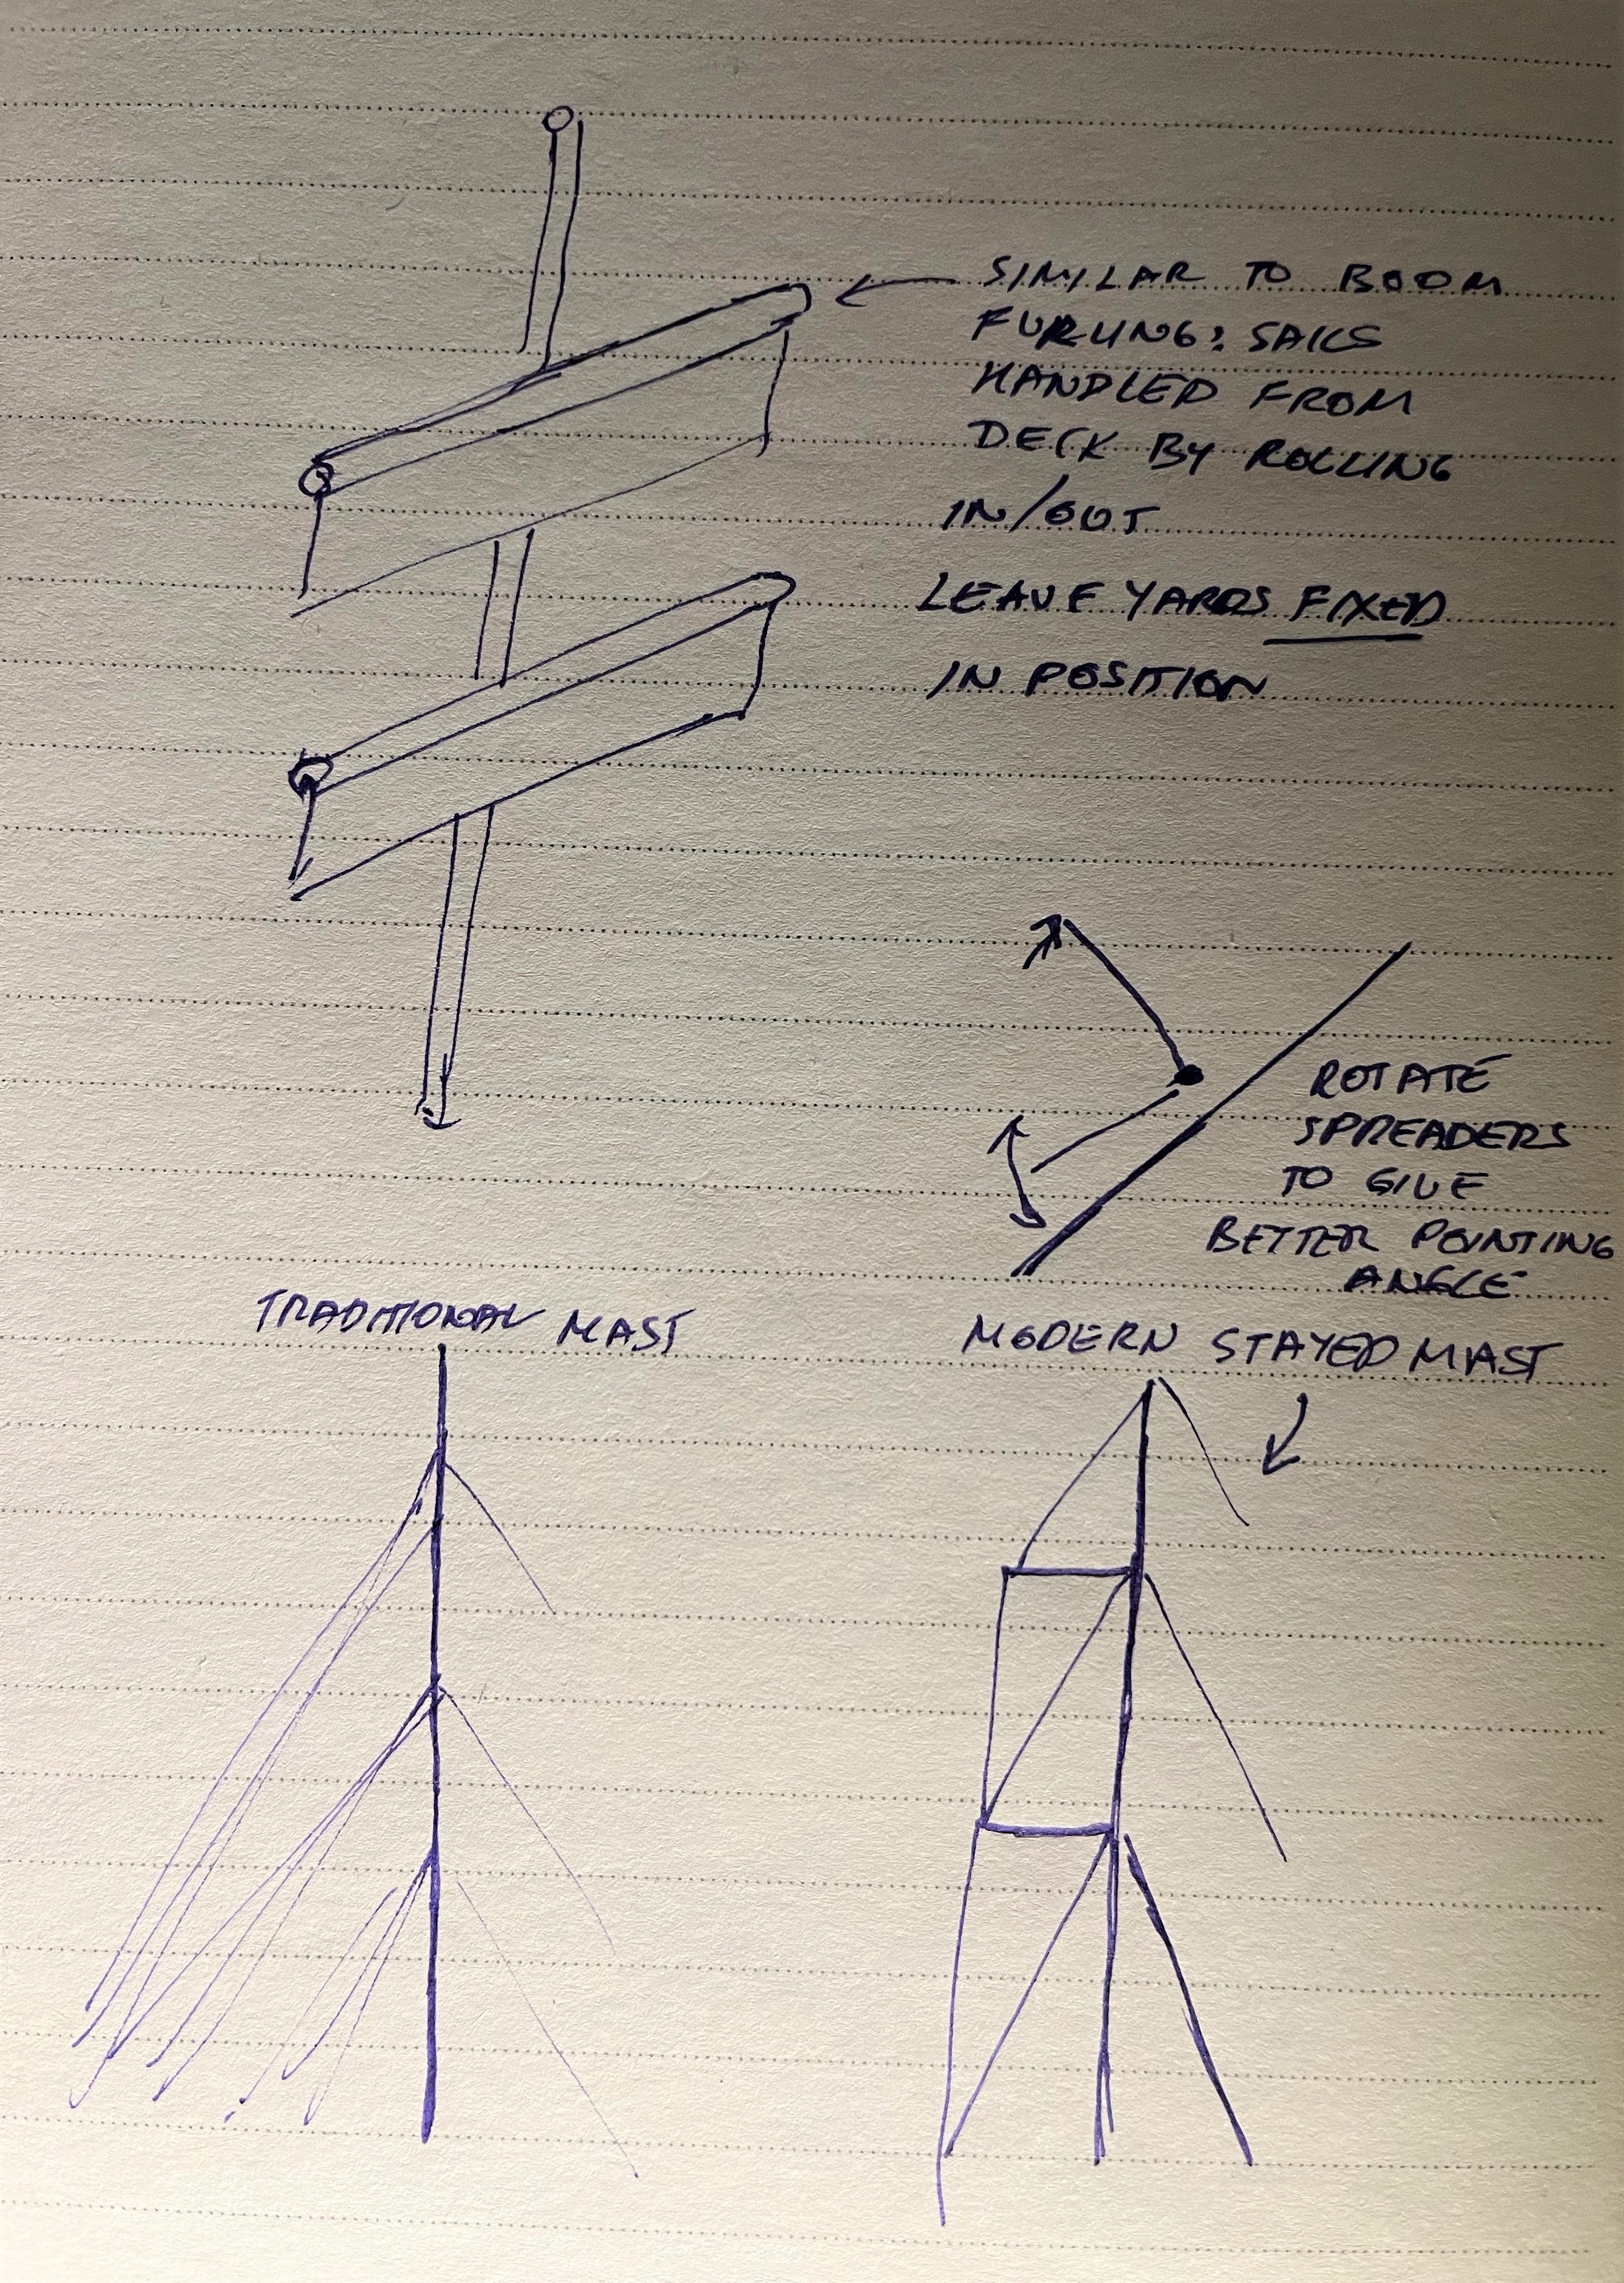 SIMILAR TO BOOM
FURLING: SAILS
HANDLED FROM
DECK BY ROLLING
IN/OUT
LEAVE YARDS FIXED
IN POSITION
ROTATE
SPREADERS
TO GIVE
BETTER POINTING
ANGLE
TRADITIONAL MAST
MODERN STAYED MAST